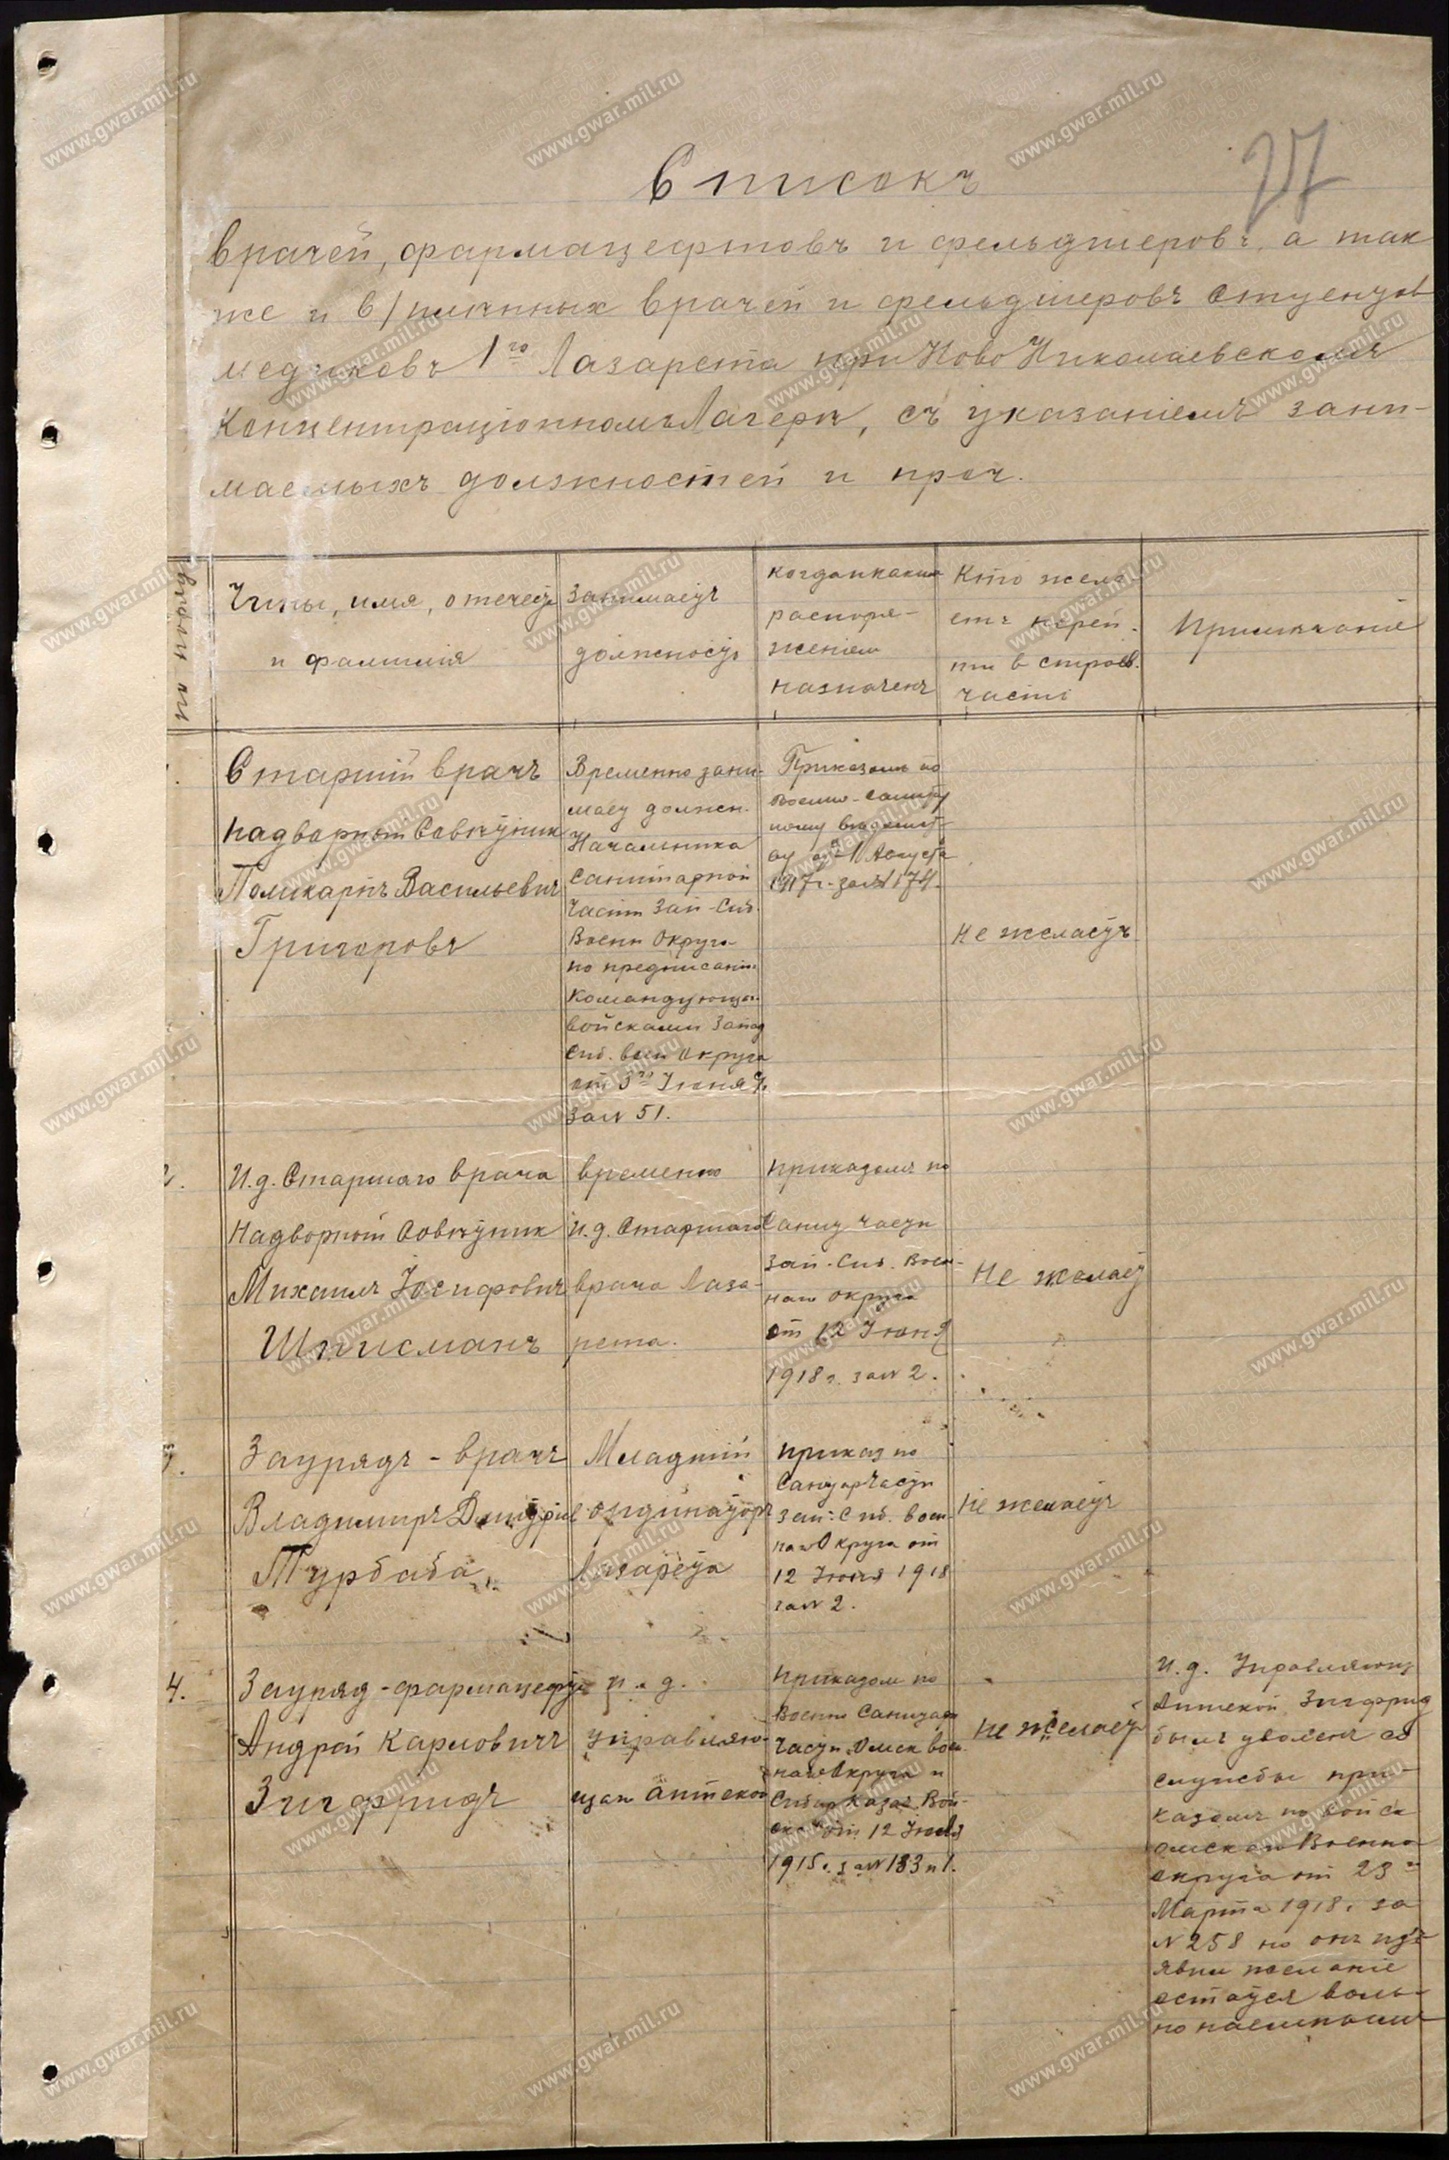 27
Списокъ
врачей, фармацефтовъ и фельдшеровъ, а так
же и в/плѣнныхъ врачей и фельдшеровъ студенцов
медиковъ 1го Лазарета при Ново Николаевскомъ
Концентраціонномъ Лагерѣ, съ указаніемъ зани-
маемыхъ должностей и проч.
Чины, имя, отечест
и фамилія
Занимаетъ
должность
когда и какимъ
распоря-
женіем
назначенъ
Кто жела-
етъ перей-
ти в строев.
части
Примѣчаніе
Старшій врачъ
надворный Совѣтник
Поликарпъ Васильевич
Григоровъ
Временно зани-
мает должн.
Начальника
санитарной
части Зап-Сиб.
Воен Округа
по предписанію
Командующаго
войсками Запад
Сиб. воен Округа
от 3го Іюня
за № 51.
Приказомъ по
Военно-Санитар
ному ведомст
от 1 Августа
1917 г. за № 174.
Не желаетъ
2.
И.д. Старшаго врача
Надворный Совѣтник
Михаилъ Іосифович
Шписманъ
временно
и.д. Старшаго
врача Лаза-
рета.
приказомъ по
Санит части
Зап-Сиб. Воен-
наго округа
от 12 Іюня
1918 г. за № 2.
Не желает
3.
Заурядъ-врачъ
Владимиръ Дмитріев
Турбаба
Младшій
ординаторъ
Лазарета
приказ по
Санитар части
Зап: Сиб. воен
наго Округа от
12 Іюня 1918
за № 2.
Не желаетъ
4.
Зауряд-фармацефт
Андрей Карловичъ
Зигфридъ
и.д.
управляю-
щаго аптекой
приказом по
Военно Санитарн
части Омск воен
наго Округа и
Сибир Казач Вой-
ска от 12 Іюля
1915 г. за № 183 п 1.
Не желает
И.д. Управляющ
Аптекой Зигфрид
былъ уволенъ со
службы при-
казомъ по войск
омскаго Военно
округа от 23го
Марта 1918 г. за
№ 258 но онъ изъ-
явил желаніе
остаться воль-
нонаемнымъ